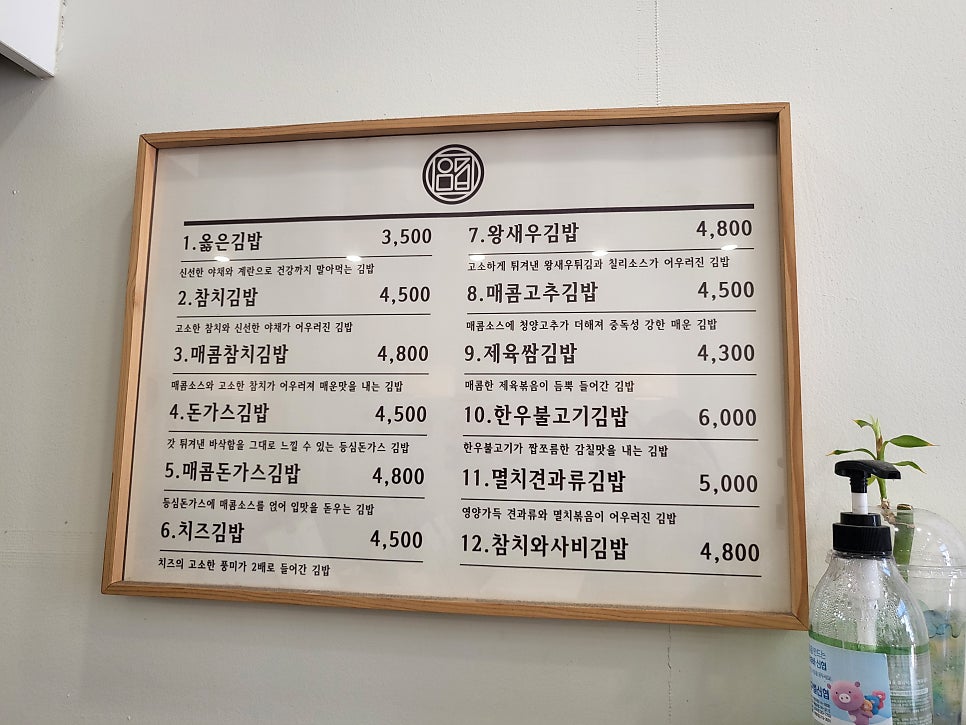 1.옳은김밥 3,500
신선한 야채와 계란으로 건강까지 말아먹는 김밥
2.참치김밥 4,500
고소한 참치와 신선한 야채가 어우러진 김밥
3.매콤참치김밥 4,800
매콤소스와 고소한 참치가 어우러져 매운맛을 내는 김밥
4.돈가스김밥 4,500
갓 튀겨낸 바삭함을 그대로 느낄 수 있는 등심돈가스 김밥
5.매콤돈가스김밥 4,800
등심돈가스에 매콤소스를 얹어 입맛을 돋우는 김밥
6.치즈김밥 4,500
치즈의 고소한 풍미가 2배로 들어간 김밥
7.왕새우김밥 4,800
고소하게 튀겨낸 왕새우튀김과 칠리소스가 어우러진 김밥
8.매콤고추김밥 4,500
매콤소스에 청양고추가 더해져 중독성 강한 매운 김밥
9.제육쌈김밥 4,300
매콤한 제육볶음이 듬뿍 들어간 김밥
10.한우불고기김밥 6,000
한우불고기가 짭쪼름한 감칠맛을 내는 김밥
11.멸치견과류김밥 5,000
영양가득 견과류와 멸치볶음이 어우러진 김밥
12.참치와사비김밥 4,800